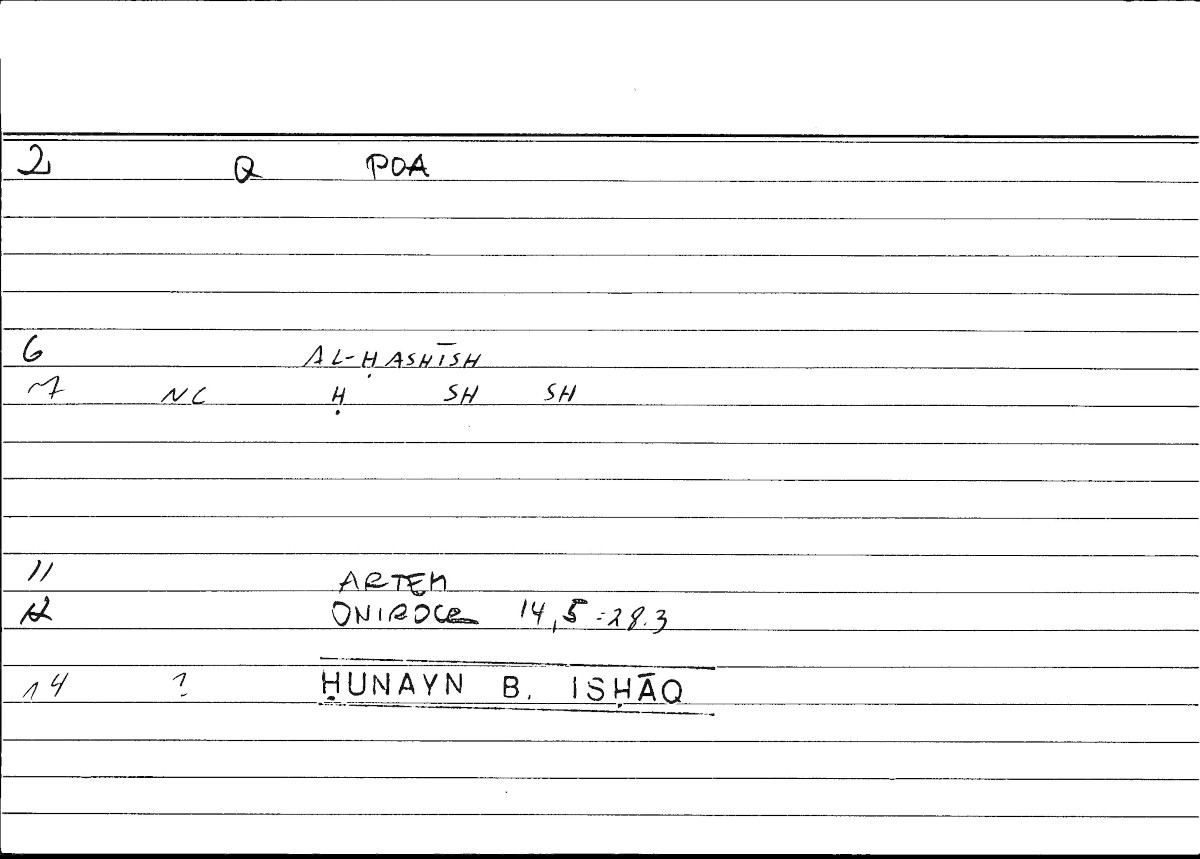 2 Q POA
6 AL-ḤASHĪSH
7 NC Ḥ SH SH
11 ARTEM
12 ONIROCR 14,5-28.3
14 ? ḤUNAYN B. ISḤĀQ